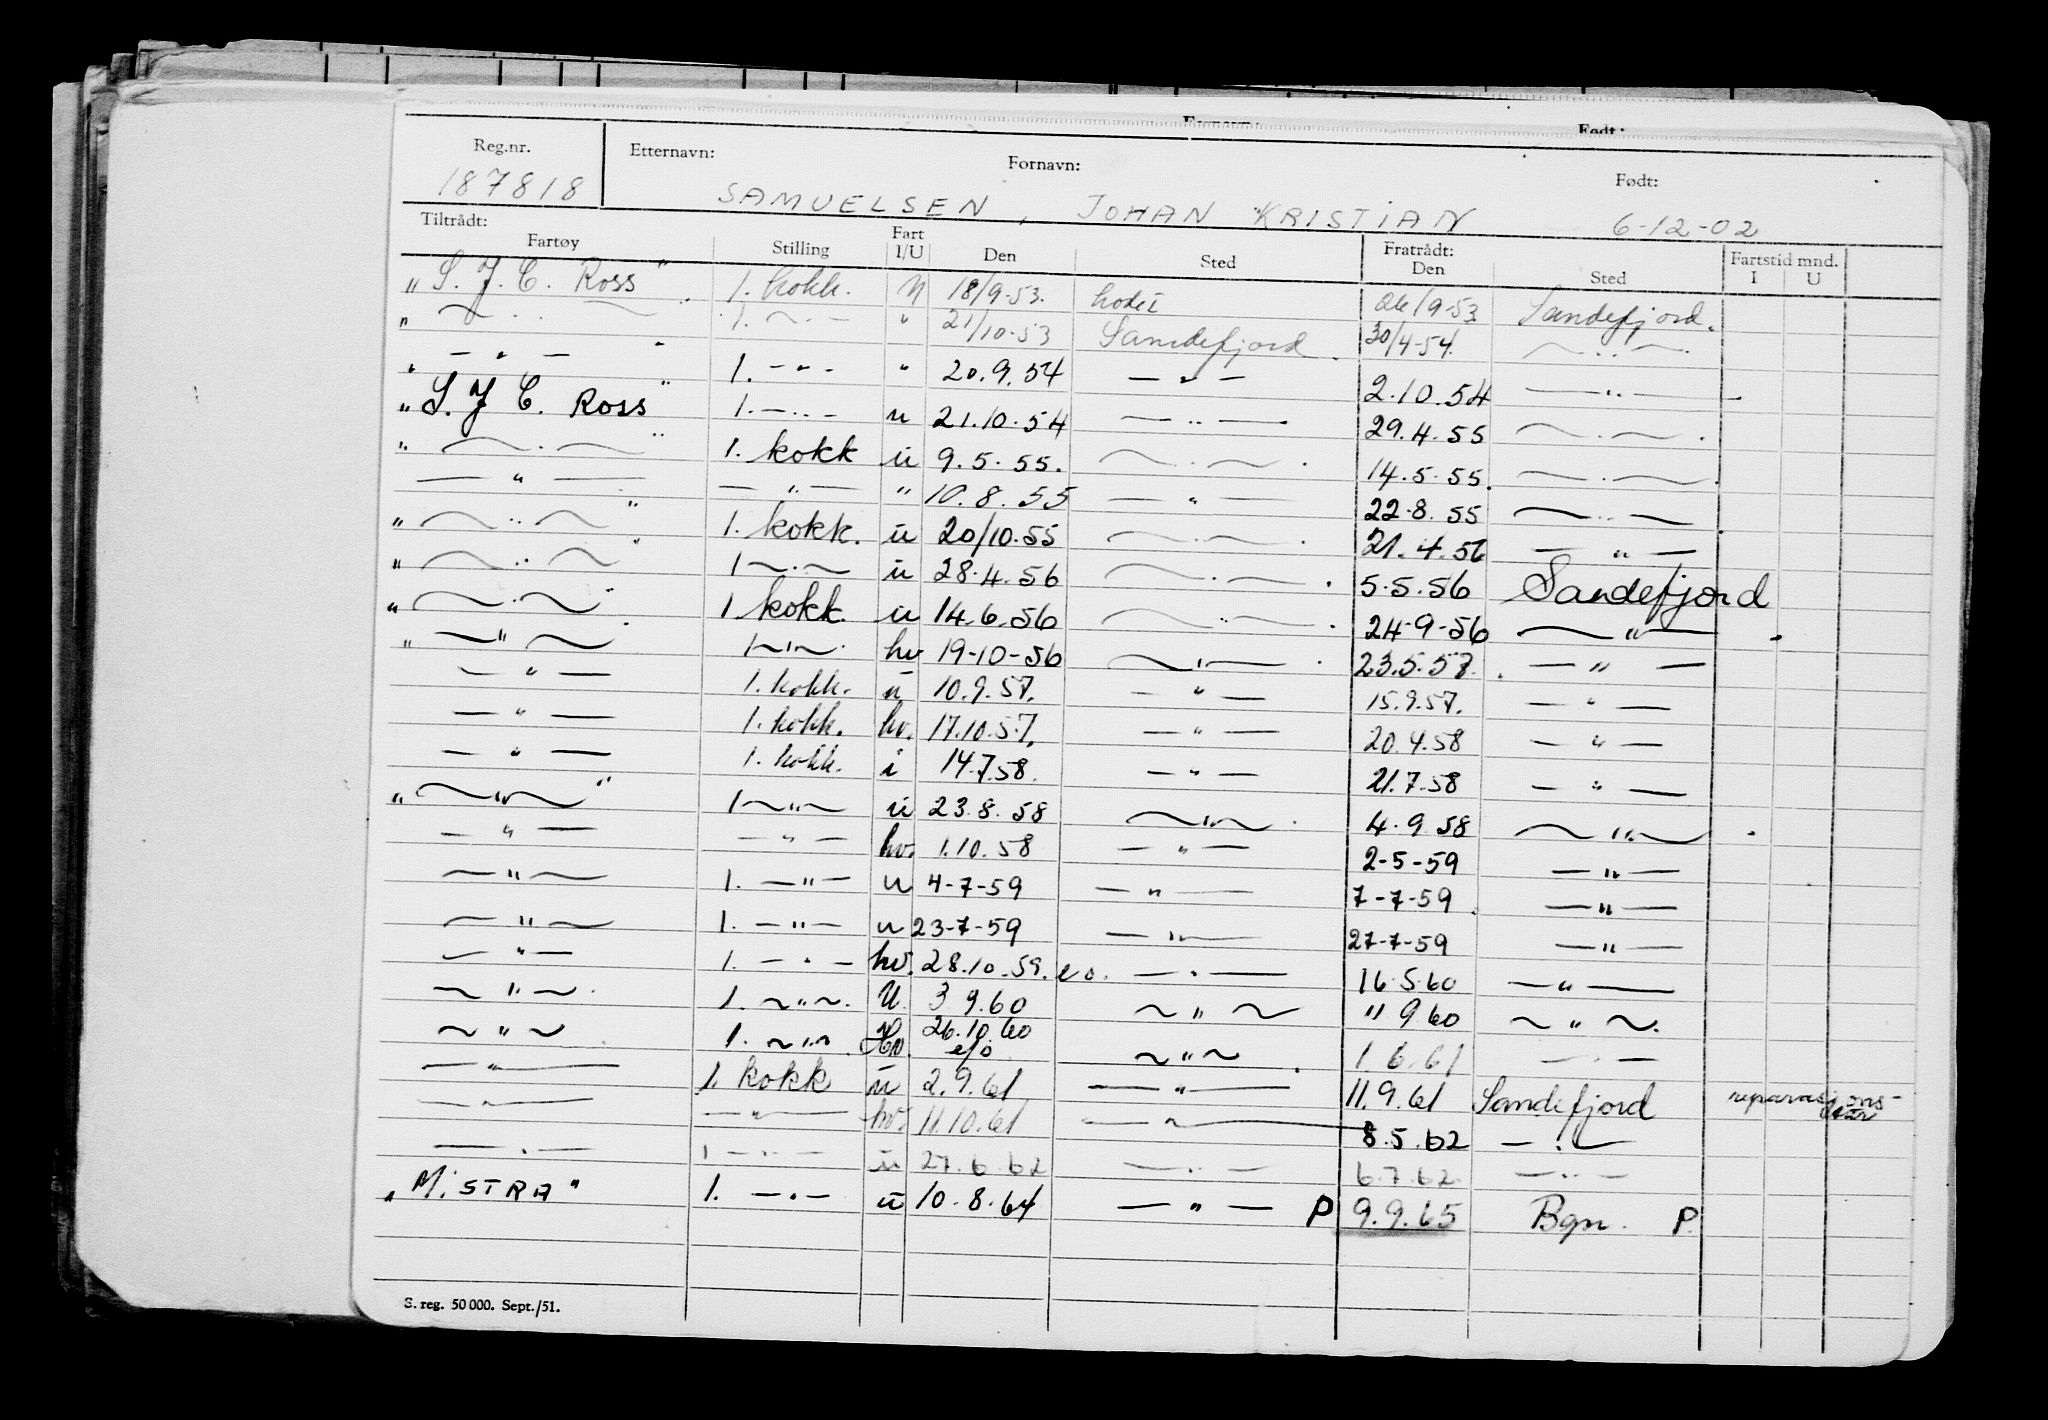 Fornavn: Født:
Reg.nr. Etternavn: Fornavn: Født:
187818 SAMUELSEN, JOHAN KRISTIAN 6-12-02
Tiltrådt: Fart Fratrådt: Fartstid mnd.
Fartøy Stilling I/U Den Sted Den Sted I U
"S. J. C. Ross" 1. kokk. 18/9-53. 26/9-53 Sandefjord.
" — ·· — 1. — · — " 21/10-53 Sandefjord. 30/4-54. — ·· —.
" — " — " 1. — " — " 20.9.54 — " — 2.10.54 — " —
"S. J C. Ross" 1. — ·· — u 21.10.54 — ·· — 29.4.55 — · — .
" — · — " 1. kokk u 9.5.55. — · — . 14.5.55. — · — .
— " — — " — " 10.8.55 — " — 22.8.55 — ·· —
" — ·· — " 1. kokk. u 20/10.55 — · — . 21.4.56 — " —
" — ·· — " 1 — · — u 28.4.56 — · — . 5.5.56 Sandefjord
" — · — " 1 kokk. u 14.6.56 — ·· — . 24-9-56 — " — .
" — " — 1 — " — . hv 19-10-56 — " — . 23.5.57. — " —
— " — 1. kokk. u 10.9.57. — " — 15.9.57. — " —
— " — 1. kokk. hv. 17.10.57. — " — 20.4.58 — " —
— " — 1. kokk. i 14.7.58. — " — 21.7.58 — " —
" — " — " 1 — " — u 23.8.58 — " — . 4.9.58 — " — .
— " — — " — hv. 1.10.58 — " — 2-5-59 — " —
— " — 1. — " — u 4-7-59 — " — 7-7-59 — " —
— " — 1. — " — u 23-7-59 — " — 27-7-59 — " —
— " — 1. — " — hv. 28.10.59. e.o. — " — 16.5.60 — " —
— " — . 1. — " — . U. 3 9.60 — " — 11 9 60 — " — .
— " — 1. — " — Hv. 26.10.60 e/o — " — 1 6.61 — · —
— " — 1. kokk u 2.9.61 — " — 11.9.61 Sandefjord
— " — — " — hv. 11.10.61 — " — 8.5.62 — · —
— · — 1 — ·· — u 27.6.62 — ·· — 6.7.62. — ·· —
"MISTRA" 1. — · — u 10.8.64 — " — P 9.9.65 Bgn. P.
S. reg. 50 000. Sept./51.